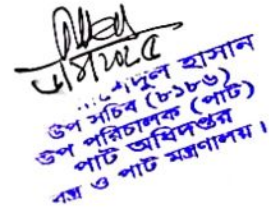 হাসান
উপ সচিব (৮১৮৬)
উপ পরিচালক (পাট)
পাট অধিদপ্তর
বস্ত্র ও পাট মন্ত্রণালয়।